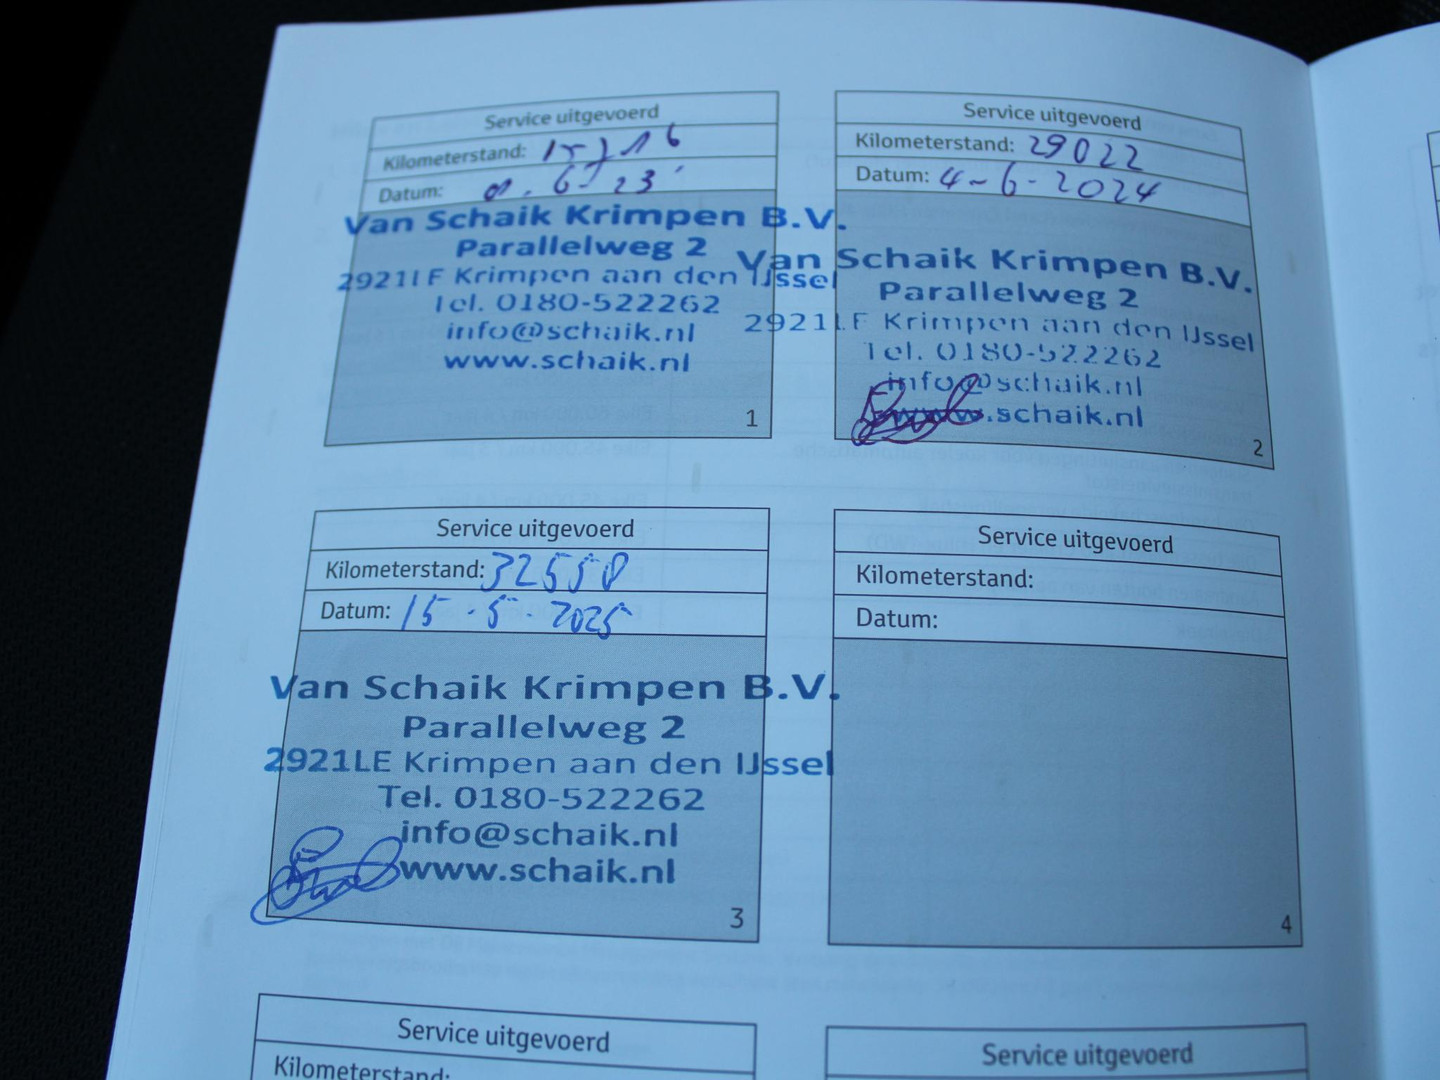 Service uitgevoerd
Kilometerstand:
Datum:
Van Schaik Krimpen B.V.
Parallelweg 2
2921LE Krimpen aan den IJssel
Tel. 0180-522262
info@schaik.nl
www.schaik.nl
1
Service uitgevoerd
Kilometerstand: 29022
Datum: 4-6-2024
Van Schaik Krimpen B.V.
Parallelweg 2
2921LE Krimpen aan den IJssel
Tel. 0180-522262
info@schaik.nl
www.schaik.nl
2
Service uitgevoerd
Kilometerstand: 32550
Datum: 15-5-2025
Van Schaik Krimpen B.V.
Parallelweg 2
2921LE Krimpen aan den IJssel
Tel. 0180-522262
info@schaik.nl
www.schaik.nl
3
Service uitgevoerd
Kilometerstand:
Datum:
4
Service uitgevoerd
Kilometerstand:
Service uitgevoerd